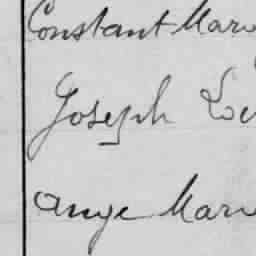 Constant Mar
Joseph
Ange Mar